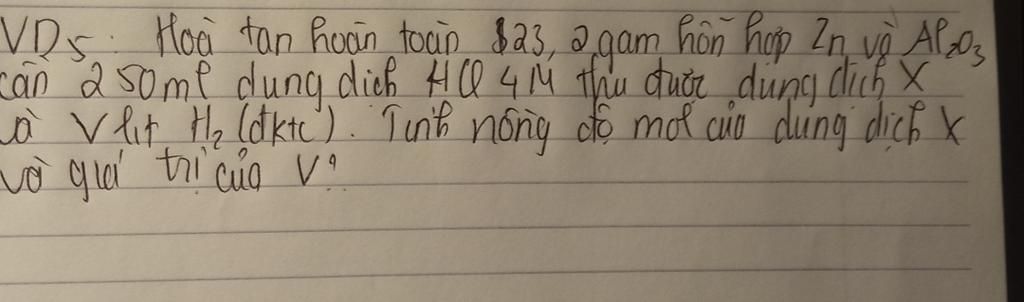 VD5: Hoà tan hoàn toàn 23,2 gam hỗn hợp Zn và Al2O3
cần 250ml dung dịch HCl 4M thu được dung dịch X
và V lít H2 (đktc). Tính nồng độ mol của dung dịch X
và giá trị của V?